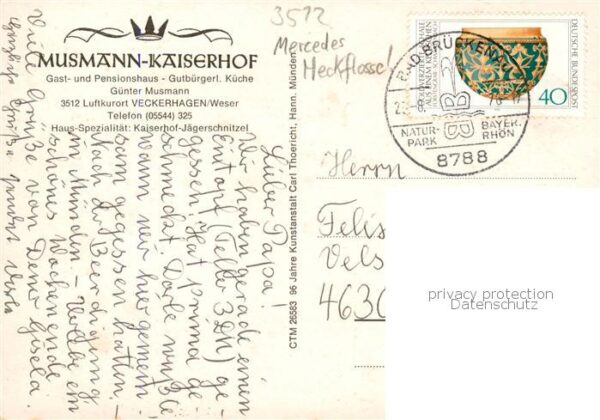 MUSMANN-KAISERHOF
Gast- und Pensionshaus - Gutbürgerl. Küche
Günter Musmann
3512 Luftkurort VECKERHAGEN/Weser
Telefon (05544) 325
Haus-Spezialität: Kaiserhof-Jägerschnitzel
Lieber Papa!
Wir haben gerade einen
Eintopf (Teller 3,- DM) ge-
gessen! Hat prima ge-
schmeckt.
wann wir hier gemein-
sam gegessen hatten!
Nach der Beerdigung
in Münden - Wolle ein
schönes Wochenende
von Deiner Gisela
Viele Grüße
CTM 26583 96 Jahre Kunstanstalt Carl Thoericht, Hann. Münden
3512
Mercedes
Heckflosse!
BAD BRÜCKENAU
NATUR-
PARK
BAYER.
RHÖN
8788
DEUTSCHE BUNDESPOST
40
Herrn
Felis
Vels
4630
privacy protection
Datenschutz